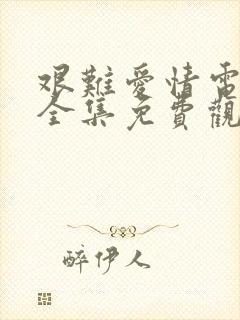 艰難愛情電
全集免費觀
醉伊人